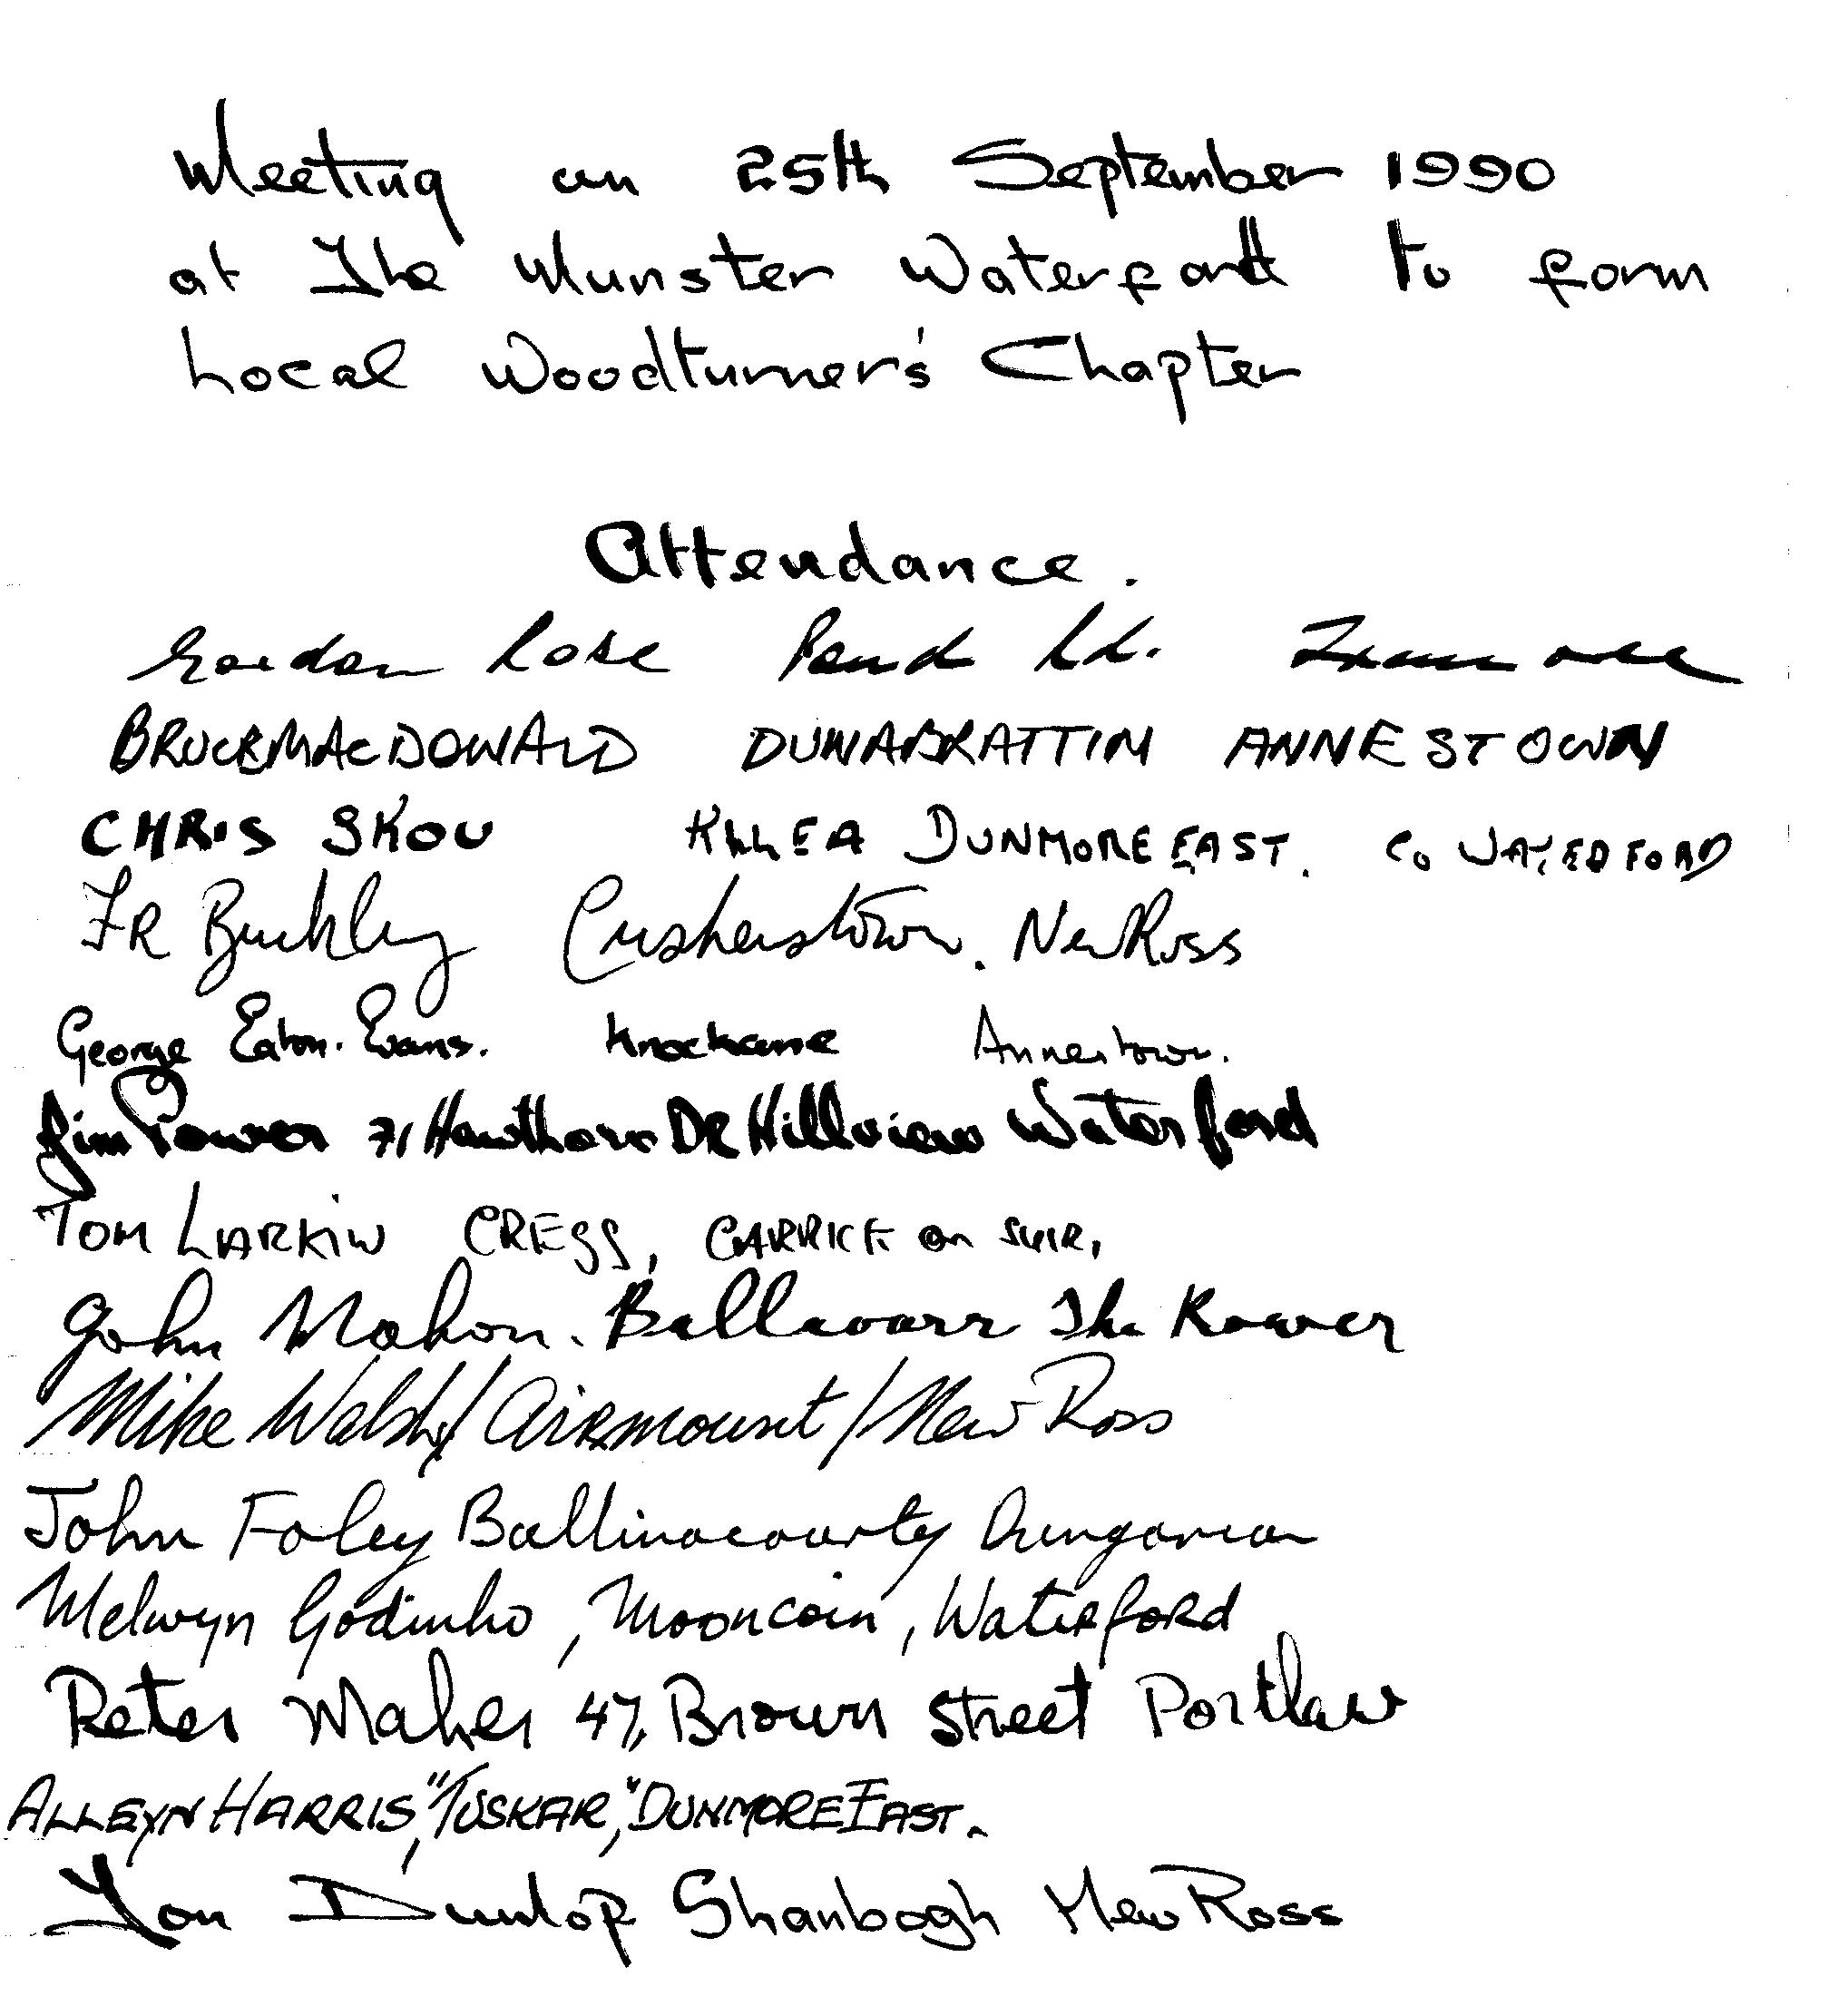 Meeting on 25th September 1990
at The Munster Waterford to form
Local Woodturner's Chapter
Attendance.
Gordon Pond Rd. Tramore
BRUCE MACDONALD DUNABRATTIN ANNESTOWN
CHRIS SKOU KILLEA DUNMORE EAST. Co WATERFORD
FR Buckley Cushenstown. New Ross
George Eaton-Evans. Knockane Annestown.
Jim Power 71 Hawthorn DR Hillview Waterford
TOM LARKIN CREGG, CARRICK on SUIR,
John Mahon. The Rower
Mike Walsh / Airmount / New Ross
John Foley Ballinacourty Dungarvan
Melwyn Godinho, Mooncoin, Waterford
Peter Maher 47, Brown Street Portlaw
ALLEYN HARRIS, "TUSKAR," DUNMORE EAST.
Dunlop Shanbogh New Ross